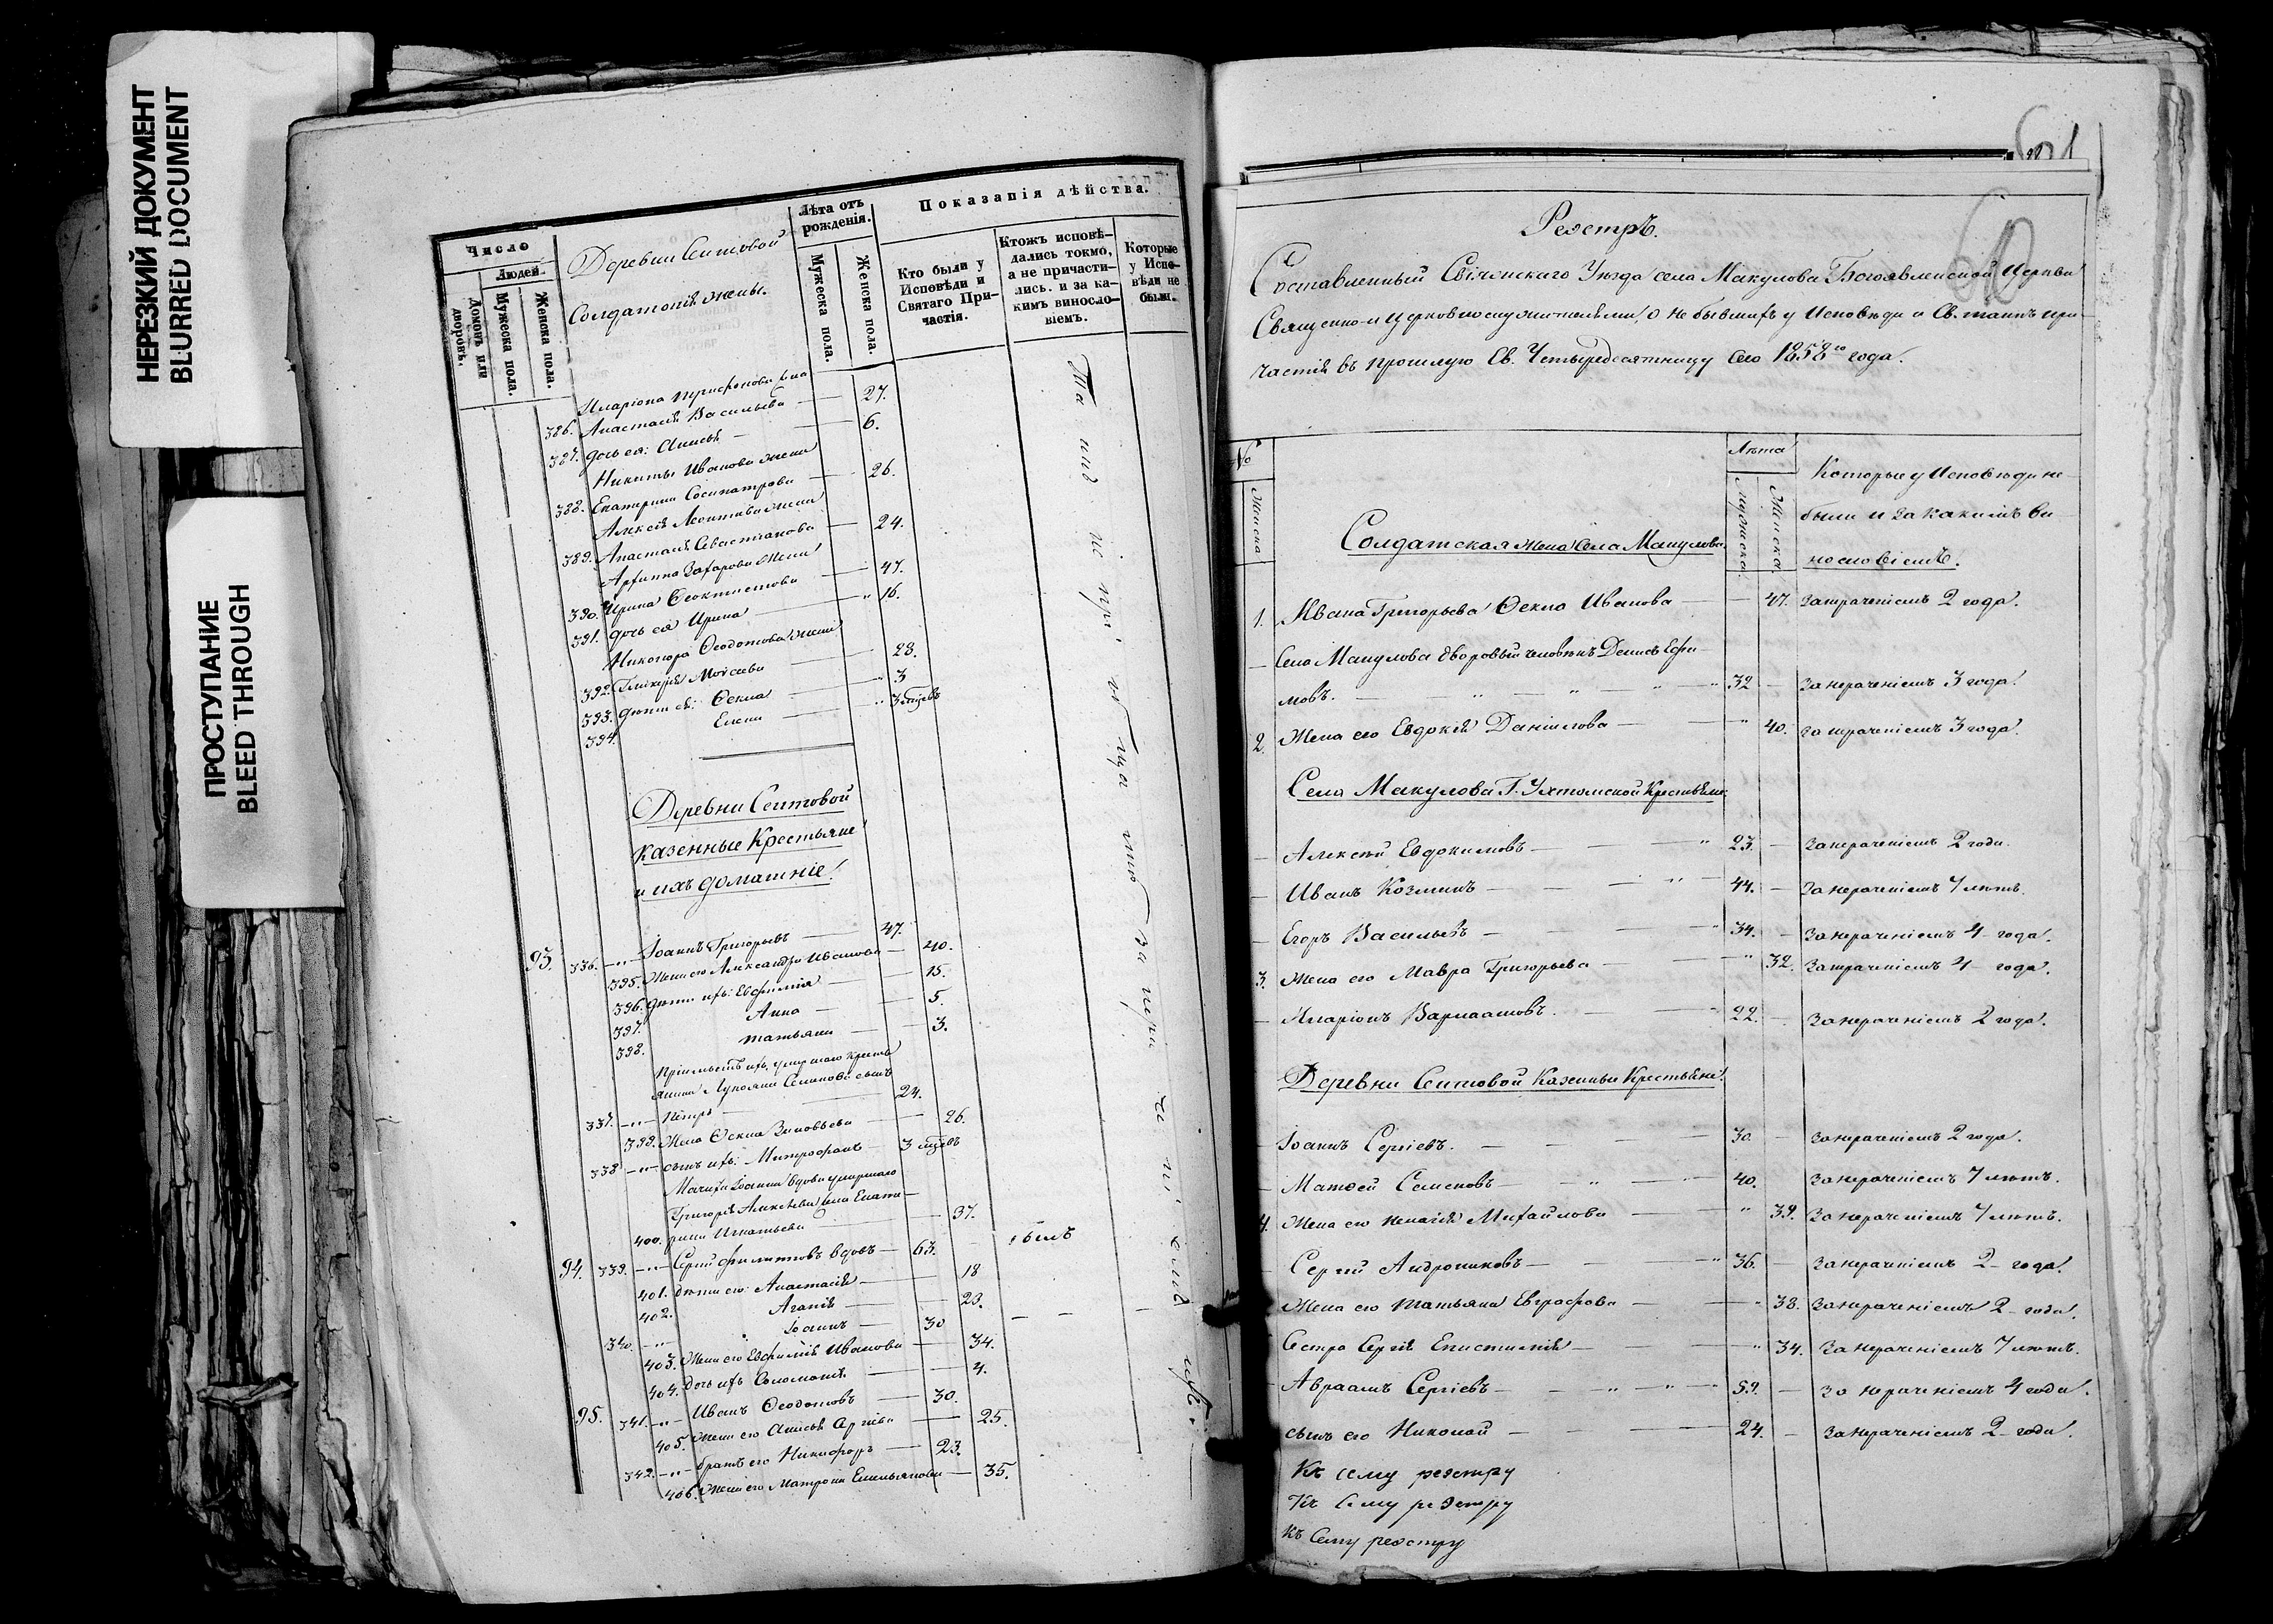 НЕРЕЗКИЙ ДОКУМЕНТ
BLURRED DOCUMENT
ПРОСТУПАНИЕ
BLEED THROUGH
Число
Людей.
Домовъ или дворовъ.
Мужеска пола.
Женска пола.
Деревни Сеитовой
Солдатскія жены.
Лѣта отъ рожденія.
Мужеска пола.
Женска пола.
Показанія дѣйства.
Кто были у Исповѣди и Святаго Причастія.
Ктожъ исповѣдались токмо, а не причастились. и за какимъ винословіемъ.
Которые у Исповѣди не были.
Иларіона Трифонова жена
386. Анастасія Васильева — 27.
387. дочь ея: Анисья — 6.
Никиты Иванова жена
388. Екатерина Сосипатрова — 26.
Алексѣя Леонтьева жена
389. Анастасія Севастіанова — 24.
Архиппа Захарова жена
390. Ирина Ѳеоктистова — 47.
391. дочь ея Ирина — " 16.
Никифора Ѳеодотова жена
392. Гликерія Моисеева — 28.
393. дѣти ея: Ѳекла — " 3
394. Елена — " 3 мѣсевъ
Деревни Сеитовой
казенные Крестьяне
и ихъ домашніе.
93. 336. —"— Іоаннъ Григорьевъ — 47.
395. Жена его Александра Иванова — 40.
396. дѣти ихъ: Евфимія — 15.
397. Анна — 5.
398. Татьяна — 3.
Пріемышъ ихъ, умершаго крестьянина
Семенова сынъ
337. —"— Петръ — 24.
399. Жена Ѳекла Зиновьева — 26.
338 —"— сынъ ихъ: Митрофанъ — 3 мѣсевъ
Мачиха Іоанна вдова умершаго
Григорія Алексѣева жена Екате-
400. рина Игнатьева — 37.
94. 339. —"— Сергѣй Филиповъ вдовъ — 63. былъ
401. дѣти его: Анастасія — 18
402. Агапія — 23.
340. —"— Іоаннъ — 30
403. Жена его Евфимія Иванова — 34.
404. Дочь ихъ Соломонія — 4.
95. 341. —"— Иванъ Ѳеодотовъ — 30.
405. Жена его Анисья Сергѣева — 25.
342. —"— братъ его Никифоръ — 23.
406. Жена его Матрона Емельянова — 35.
601
60
Реэстръ.
Составленный Свіяжскаго Уѣзда села Макулова Богоявленской Церкви
Священно-и церковнослужителями, о не бывшихъ у Исповѣди и Св. таинъ при-
частія въ прошлую Св. Четыредесятницу сего 1858го года.
№
Женска
Солдатская жена Села Макулова.
Лѣта
Мужеска.
Женска.
Которые у Исповѣди не
были и за какимъ ви-
нословіемъ.
1. Ивана Григорьева Ѳекла Иванова — 47. За нераченіемъ 2 года.
— Села Макулова дворовый человѣкъ Денисъ Ефи-
мовъ. — " — " — " 32 — за нераченіемъ 3 года.
2. Жена его Евдокія Данилова — " 40. за нераченіемъ 3 года.
Села Макулова Г. Ухтомской Крестьяне.
— Алексѣй Евдокимовъ — " 23. — За нераченіемъ 2 года.
— Иванъ Козминъ — " 44. — За нераченіемъ 7 лѣтъ.
— Егоръ Васильевъ — " 34. — За нераченіемъ 4 года.
3. Жена его Мавра Григорьева — " 32. За нераченіемъ 4 года.
— Иларіонъ Варлаамовъ. — " 22. — За нераченіемъ 2 года.
Деревни Сеитовой Казенные Крестьяне.
Іоаннъ Сергіевъ. — 30 — За нераченіемъ 2 года.
— Матѳей Семеновъ — " — 40. За нераченіемъ 7 лѣтъ.
4. Жена его Пелагія Михайлова — " 39. За нераченіемъ 7 лѣтъ.
Сергій Андрониковъ — " 36. — За нераченіемъ 2 года.
Жена его Татьяна Евграфова — " 38. За нераченіемъ 2 года.
Сестра Сергія Епистимія — " 34. За нераченіемъ 7 лѣтъ.
Авраамъ Сергіевъ — " " 59. — За нераченіемъ 4 года.
сынъ его Николай — 24. — За нераченіемъ 2 года.
Къ сему реэстру
Къ сему реэстру
Къ Сему реэстру